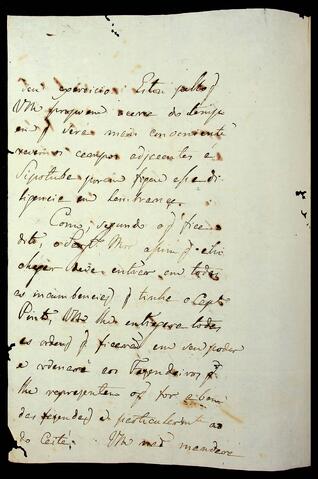 seu exercicio. Estou pello q
Vm propoem acerca do tempo
em q sera mais conveniente
revermos campos adjacentes á
Sipotuba porém fique essa di-
ligencia em lembrança.
Como, segundo o q fica
dito, o Sargto Mor assim q ahi
chegar deve entrar em todas
as incumbencias q tinha o Capm
Pinto, Vm lhe entregara todas
as ordens q ficarão em seu poder
e ordenará aos Fazendeiros q
lhe representem o q for a bem
das fazendas e particularmte ao
do Caeté. Vm me mandara